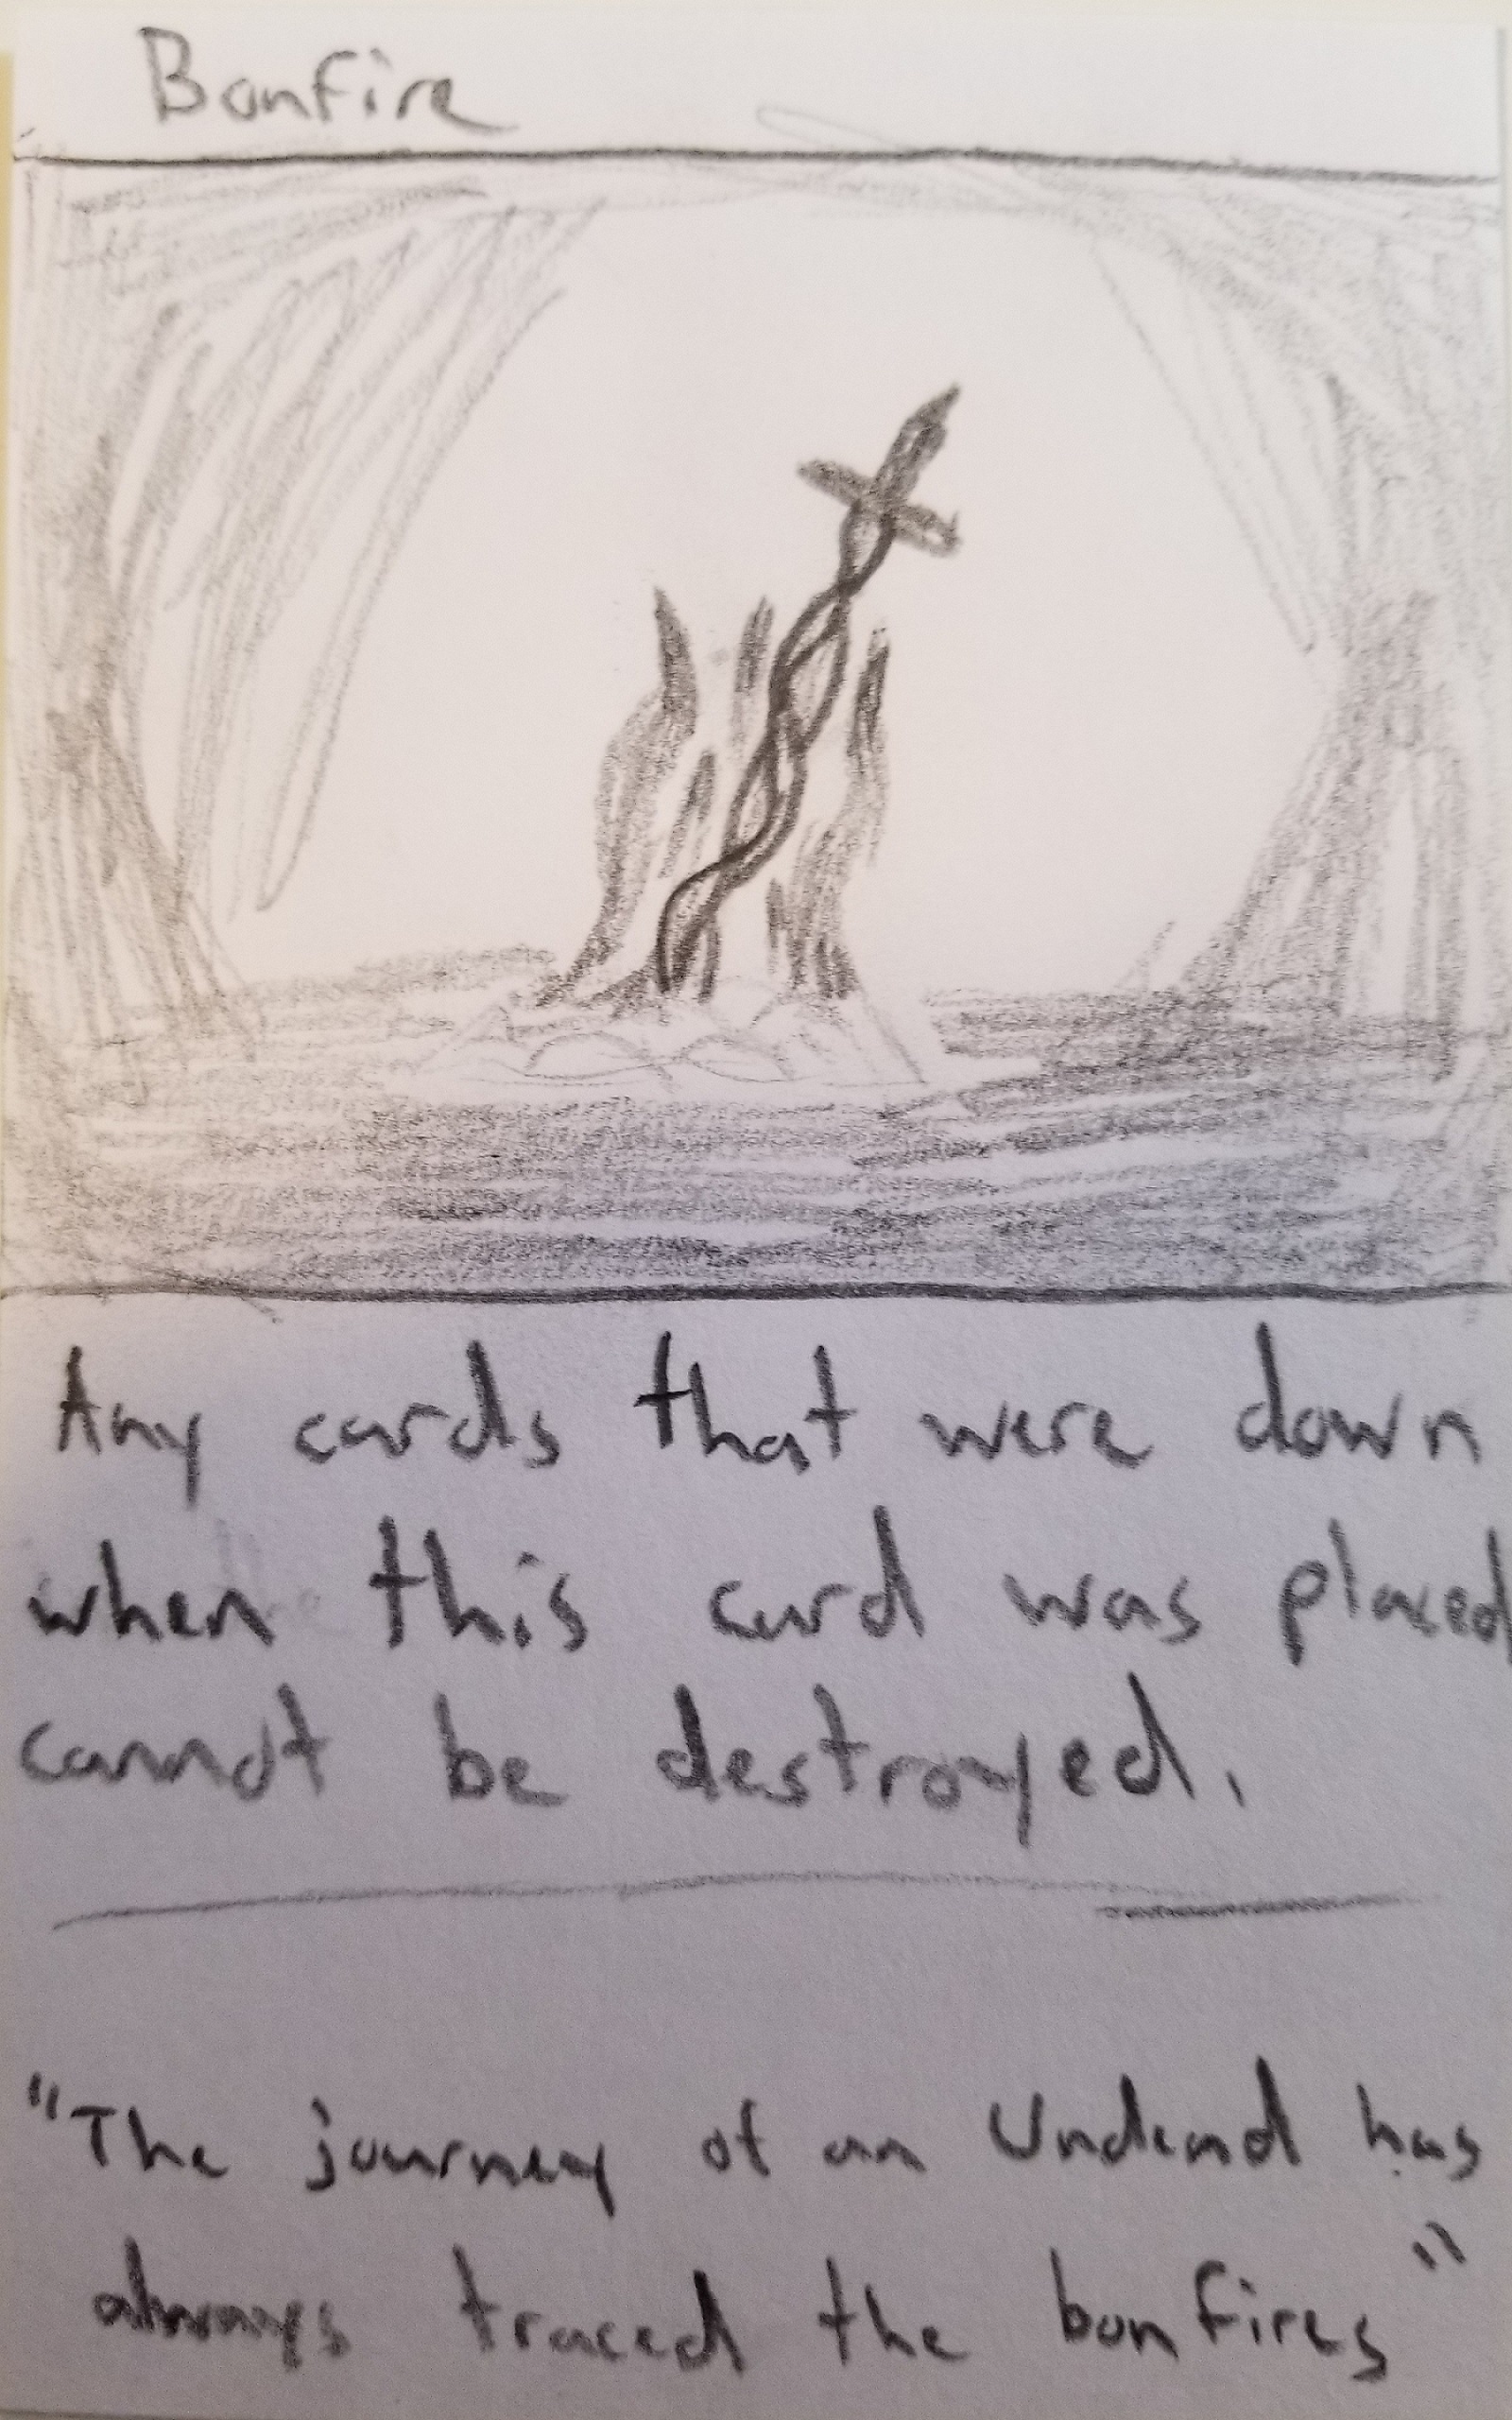 Bonfire
Any cards that were down
when this card was placed
cannot be destroyed.
"The journey of an Undead has
always traced the bonfires"